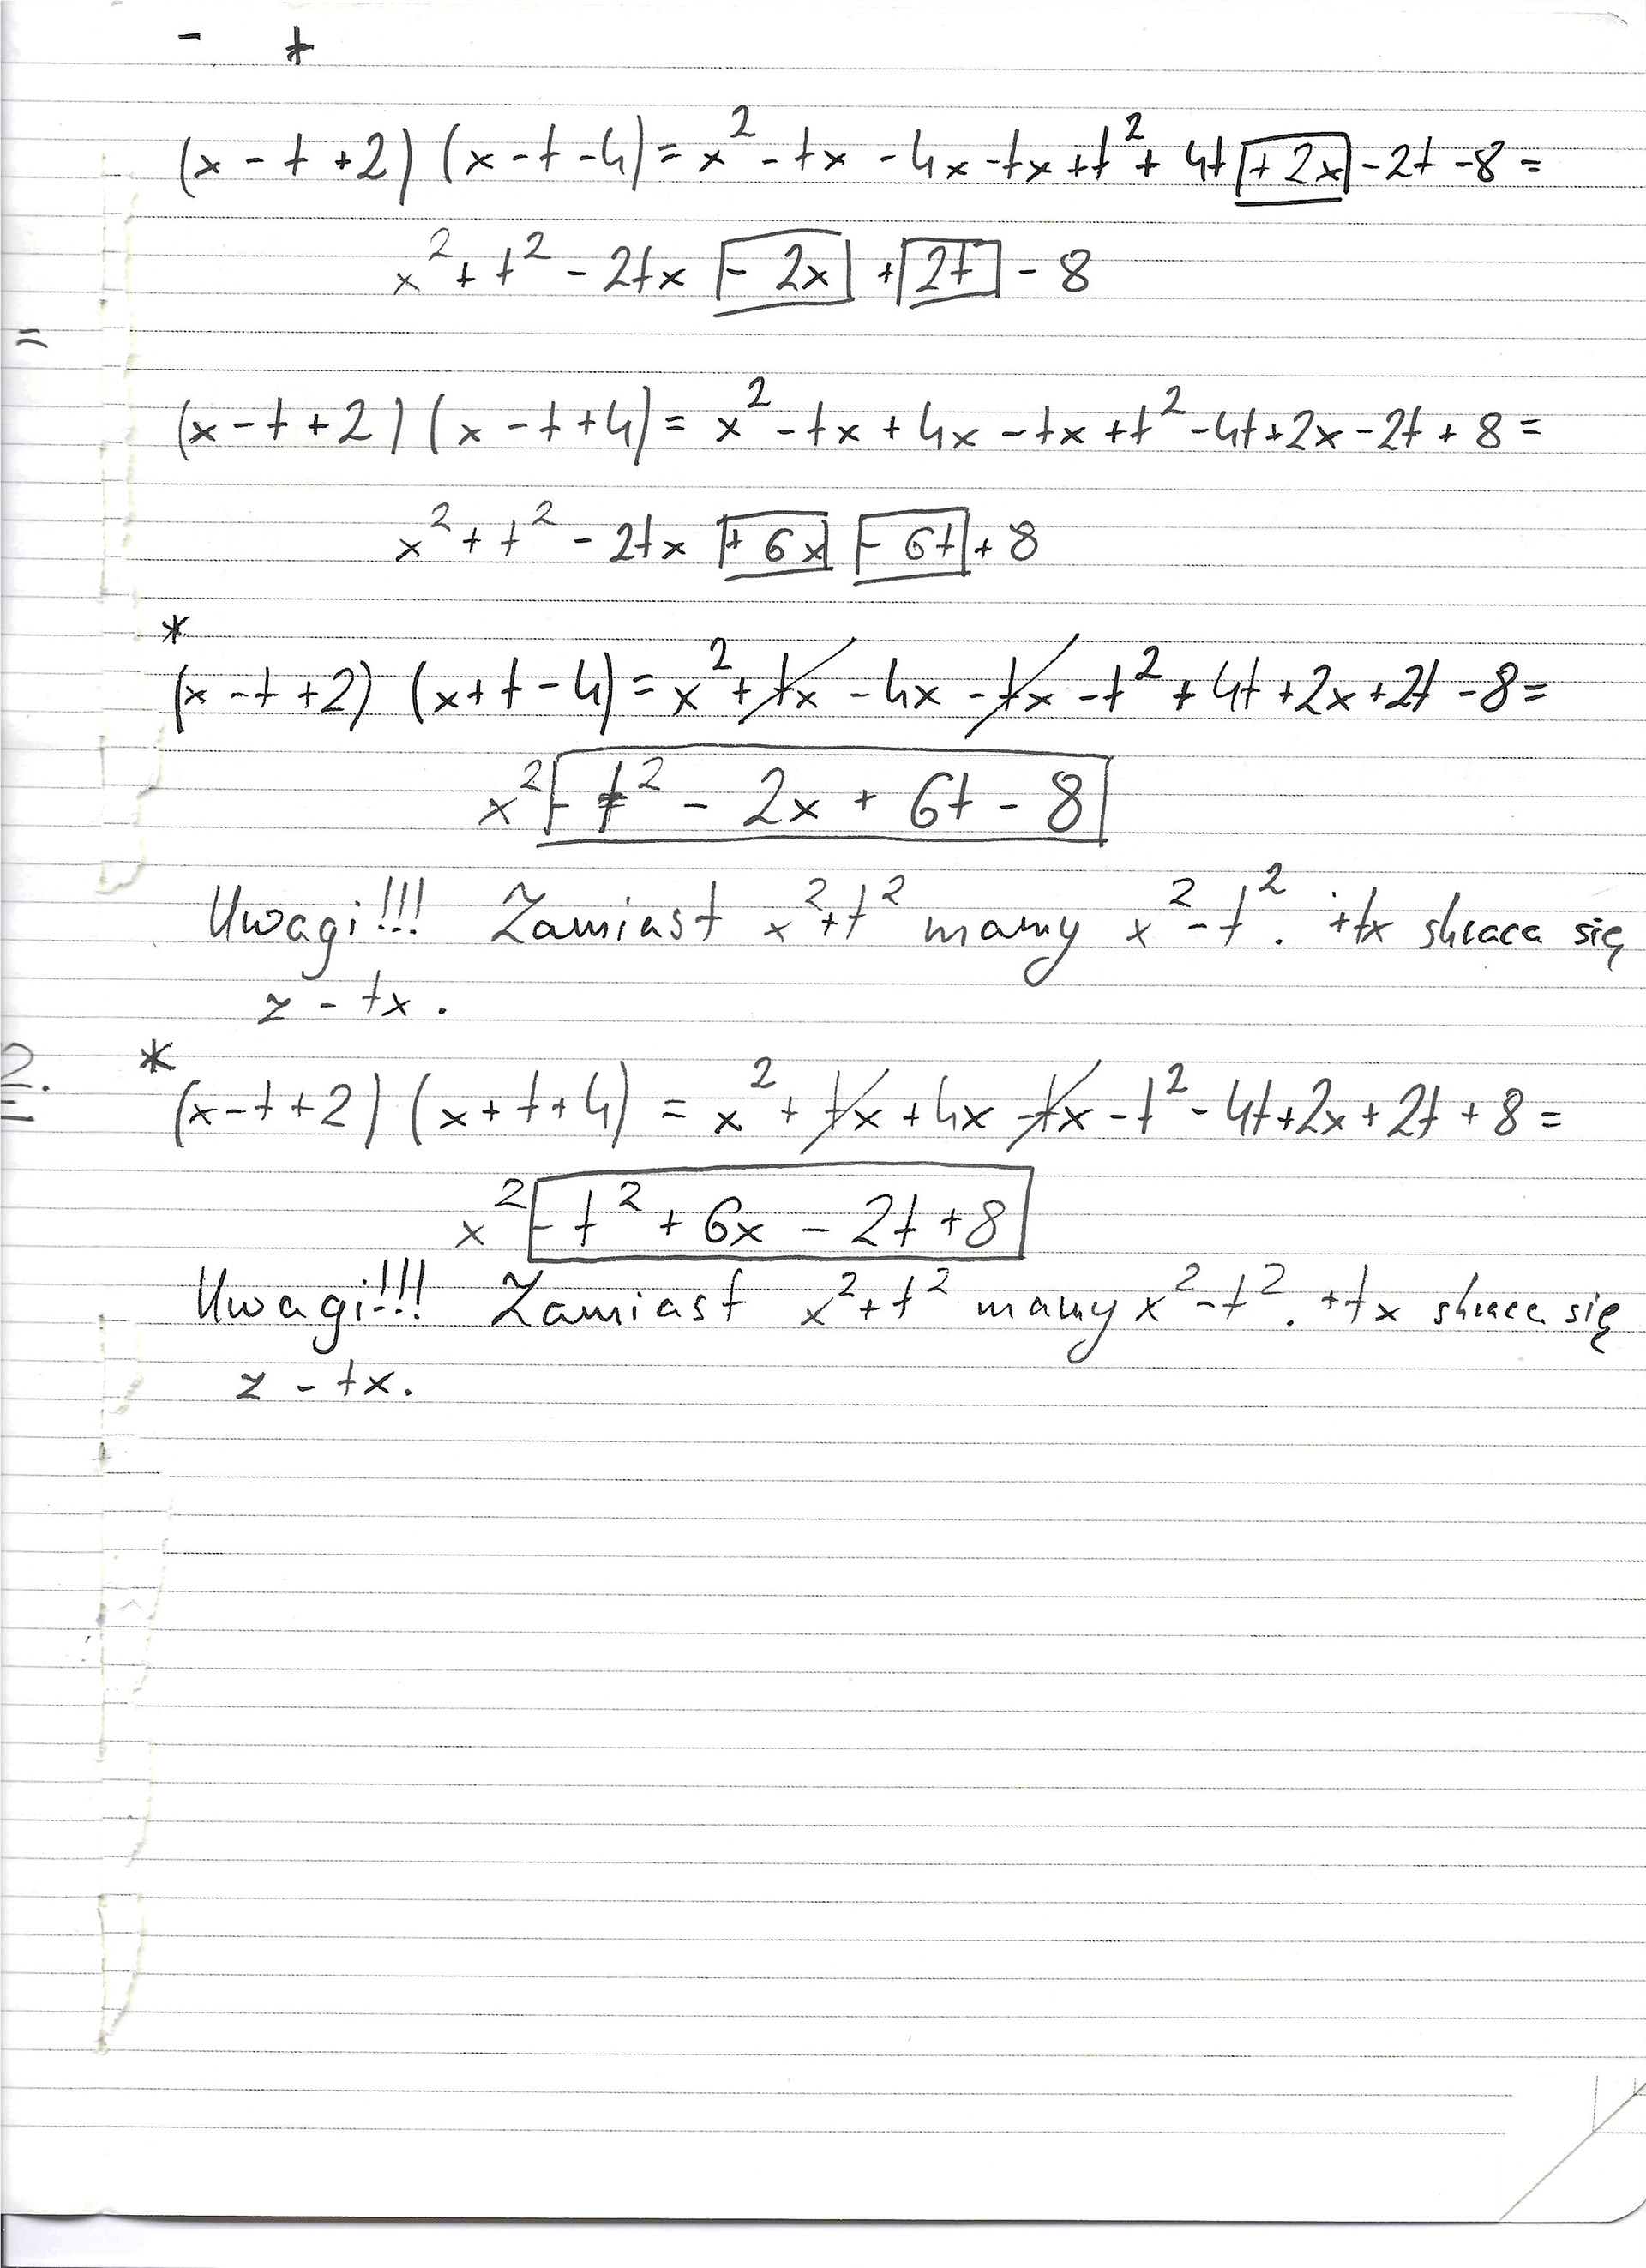 - +
(x - t + 2) (x - t - 4) = x² - tx - 4x - tx + t² + 4t + 2x - 2t - 8 =
x² + t² - 2tx - 2x + 2t - 8
=
(x - t + 2) (x - t + 4) = x² - tx + 4x - tx + t² - 4t + 2x - 2t + 8 =
x² + t² - 2tx + 6x - 6t + 8
*
(x - t + 2) (x + t - 4) = x² + tx - 4x - tx - t² + 4t + 2x + 2t - 8 =
x² - t² - 2x + 6t - 8
Uwagi!!! Zamiast x² + t² mamy x² - t². +tx skraca się
z - tx.
2. *
(x - t + 2) (x + t + 4) = x² + tx + 4x - tx - t² - 4t + 2x + 2t + 8 =
x² - t² + 6x - 2t + 8
Uwagi!!! Zamiast x² + t² mamy x² - t². +tx skraca się
z - tx.